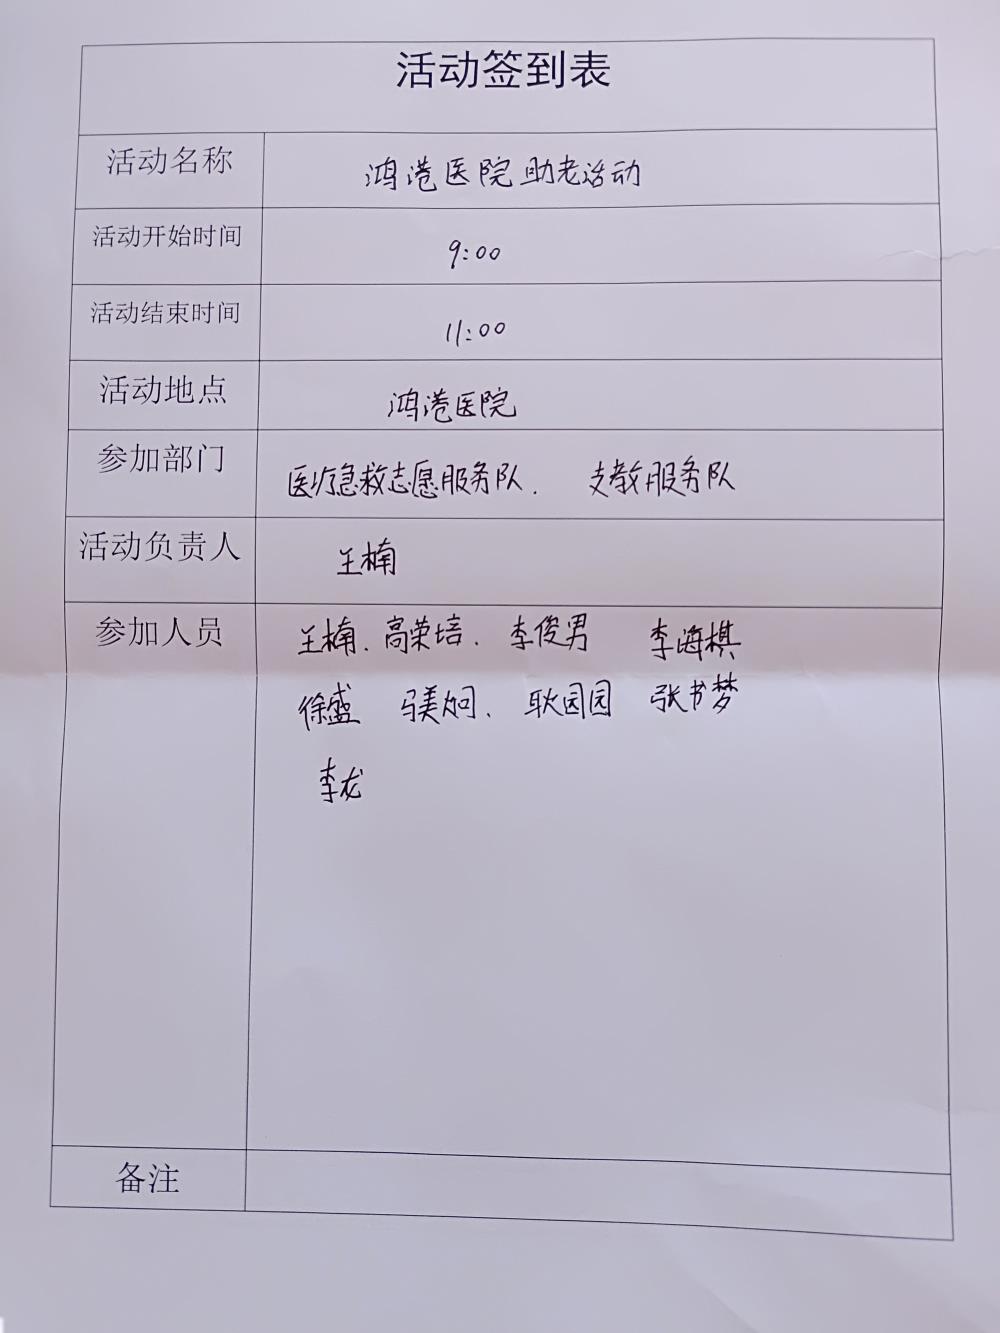 活动签到表
活动名称 鸿港医院助老活动
活动开始时间 9:00
活动结束时间 11:00
活动地点 鸿港医院
参加部门 医疗急救志愿服务队、 支教服务队
活动负责人 王楠
参加人员 王楠、高荣培、李俊男 李海棋
徐盛 耿园园 张书梦
李龙
备注